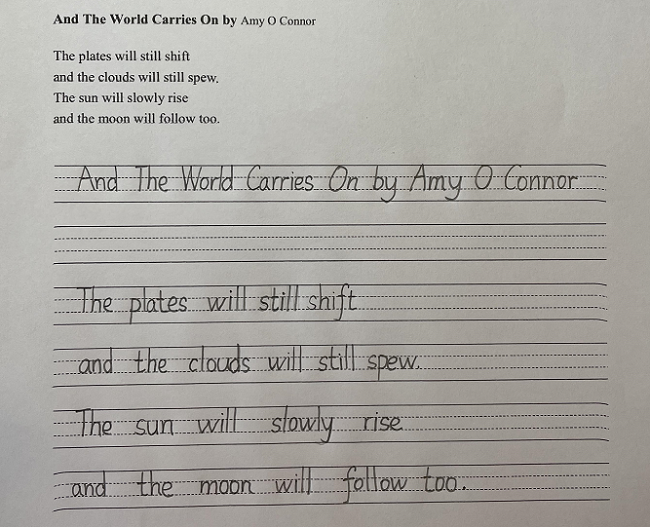 And The World Carries On by Amy O Connor
The plates will still shift
and the clouds will still spew.
The sun will slowly rise
and the moon will follow too.
And The World Carries On by Amy O Connor
The plates will still shift
and the clouds will still spew.
The sun will slowly rise
and the moon will follow too.